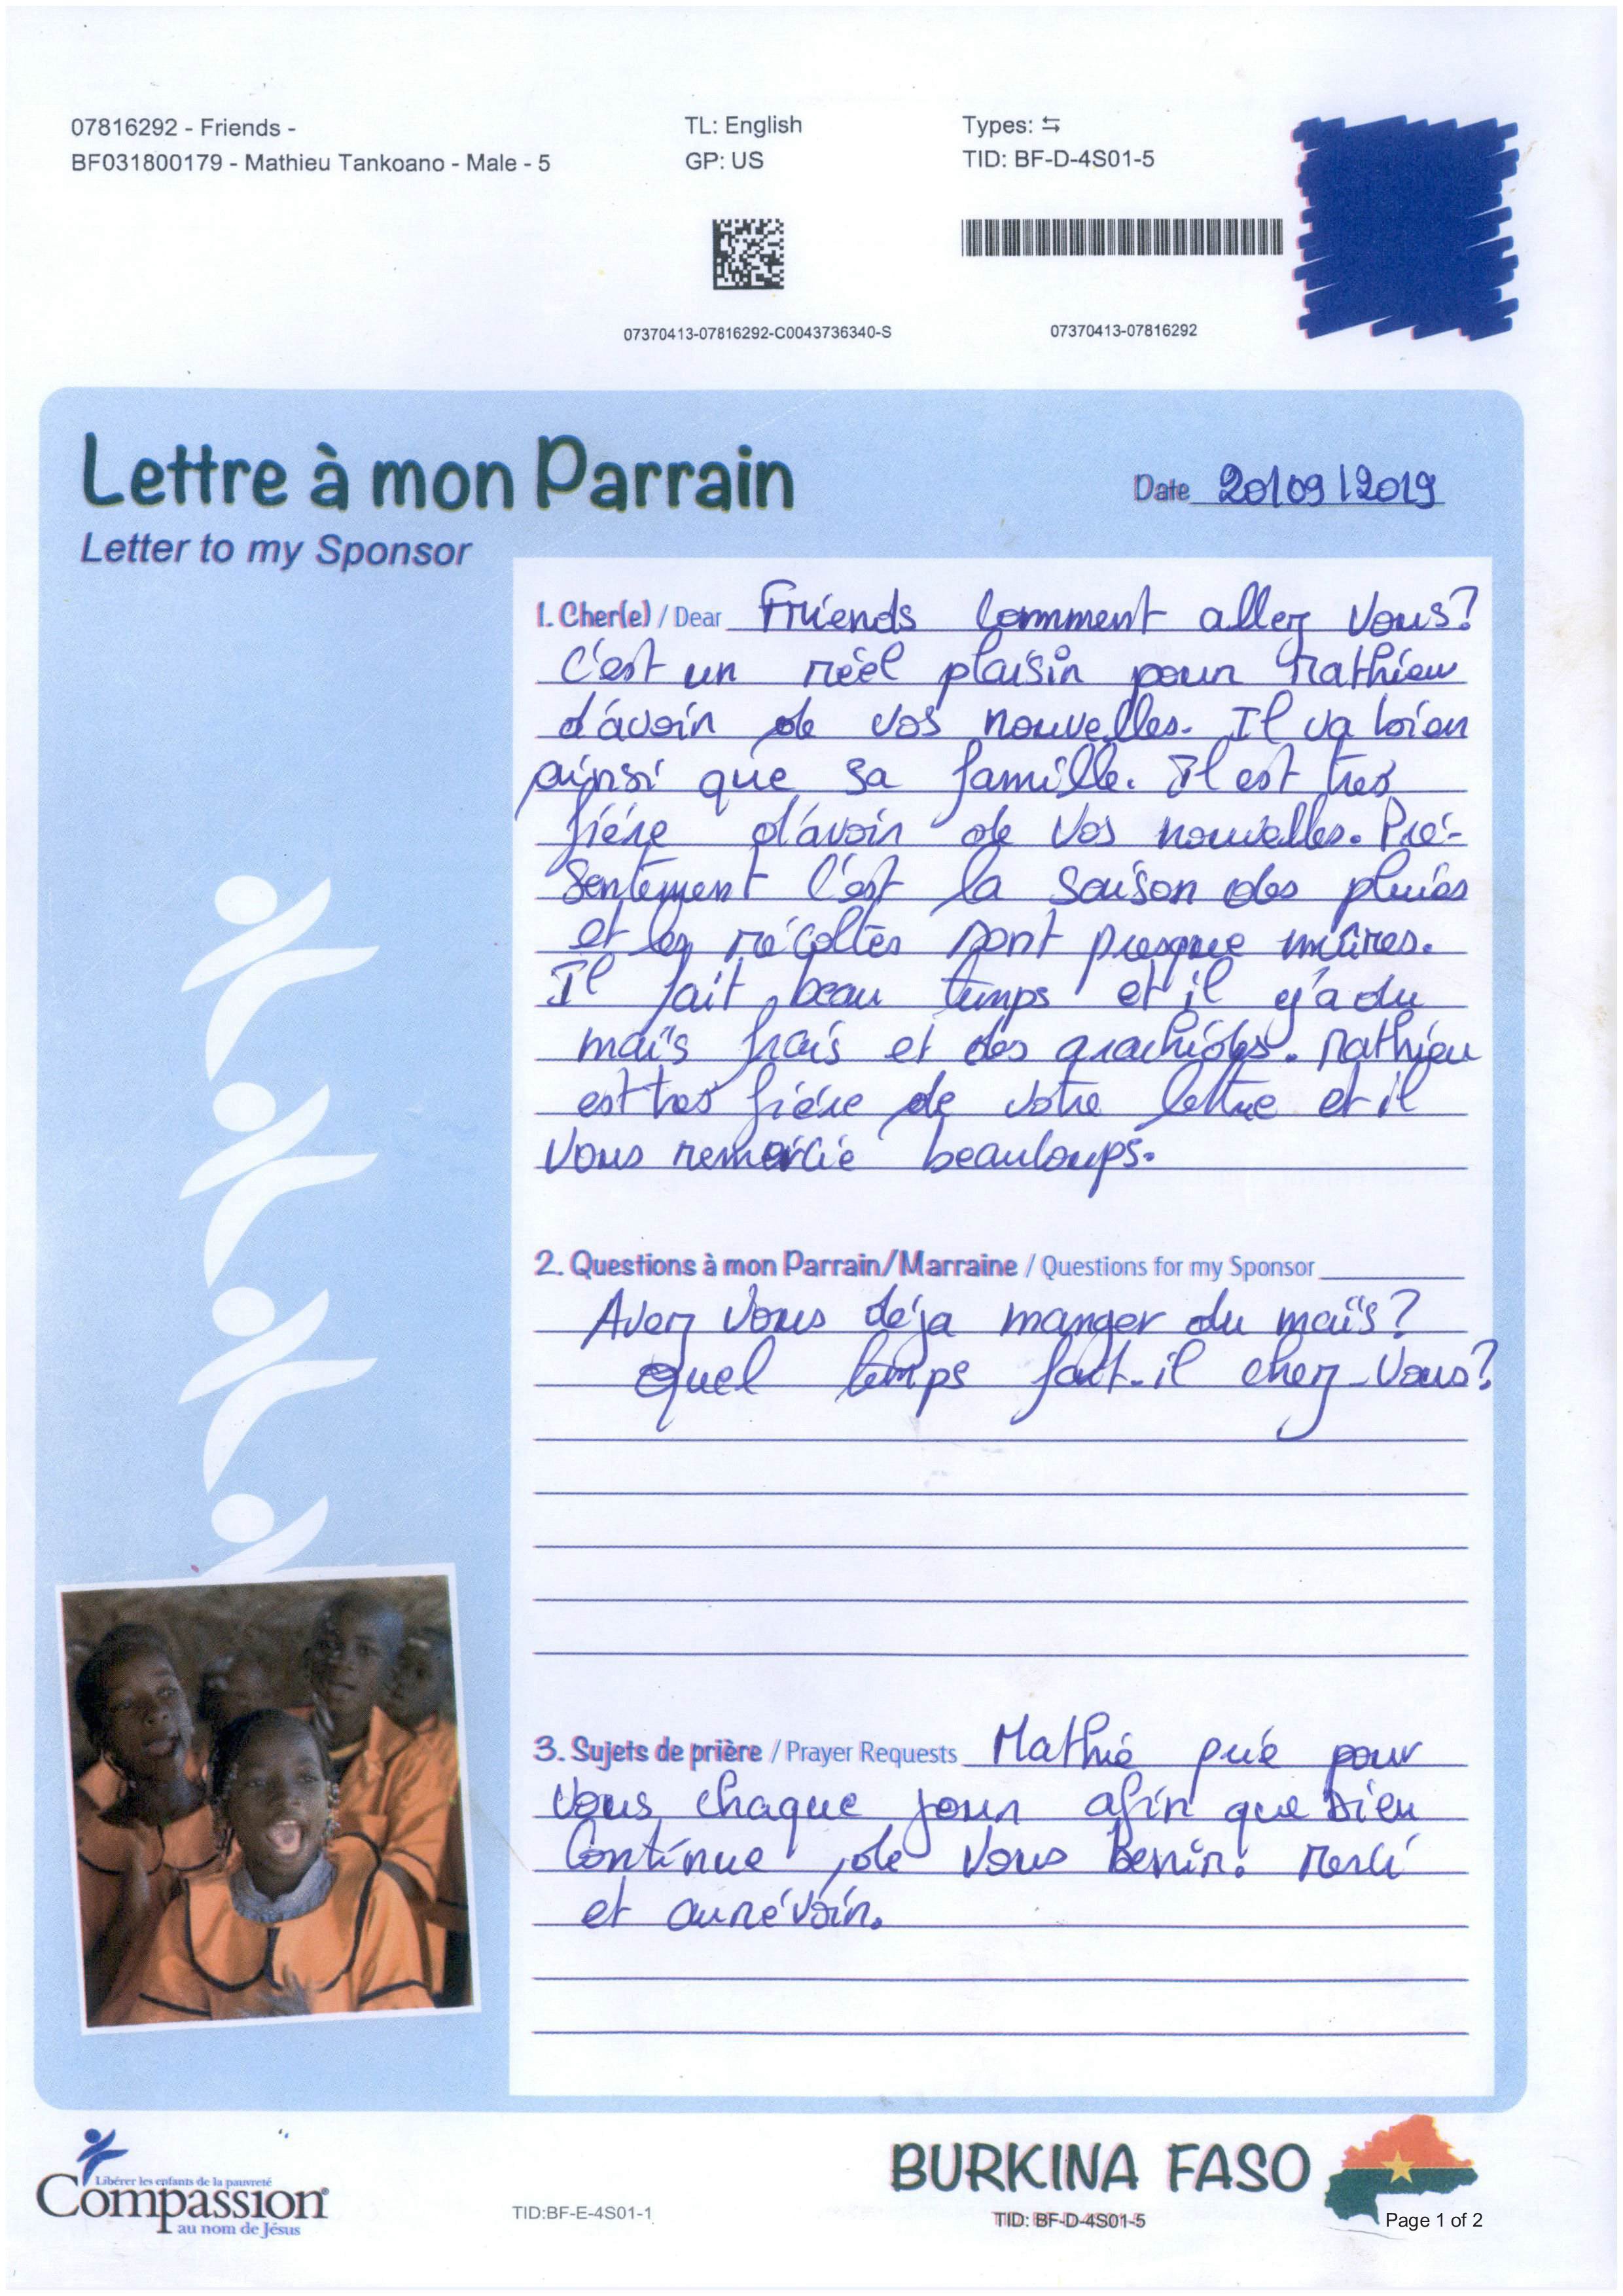 07816292 - Friends -
BF031800179 - Mathieu Tankoano - Male - 5
TL: English
GP: US
Types: ⇆
TID: BF-D-4S01-5
07370413-07816292-C0043736340-S
07370413-07816292
Lettre à mon Parrain
Letter to my Sponsor
Date 20/09/2019
1. Cher(e) / Dear Friends Comment allez Vous?
C'est un réel plaisir pour Mathieu
d'avoir de vos nouvelles. Il va bien
ainsi que sa famille. Il est tres
fiére d'avoir de vos nouvelles. Pré-
sentement c'est la saison des pluies
et les récoltes sont presque mûres.
Il fait beau temps et il y'a du
maïs frais et des arachides. Mathieu
est tres fiére de votre lettre et il
Vous remercie beaucoups.
2. Questions à mon Parrain/Marraine / Questions for my Sponsor
Avez Vous déja manger du maïs?
Quel temps fait-il chez-Vous?
3. Sujets de prière / Prayer Requests Mathié prié pour
Vous chaque jour afin que Dieu
Continue de Vous Benir. Merci
et aurévoir.
Libérer les enfants de la pauvreté
Compassion
au nom de Jésus
TID:BF-E-4S01-1
BURKINA FASO
TID: BF-D-4S01-5
Page 1 of 2